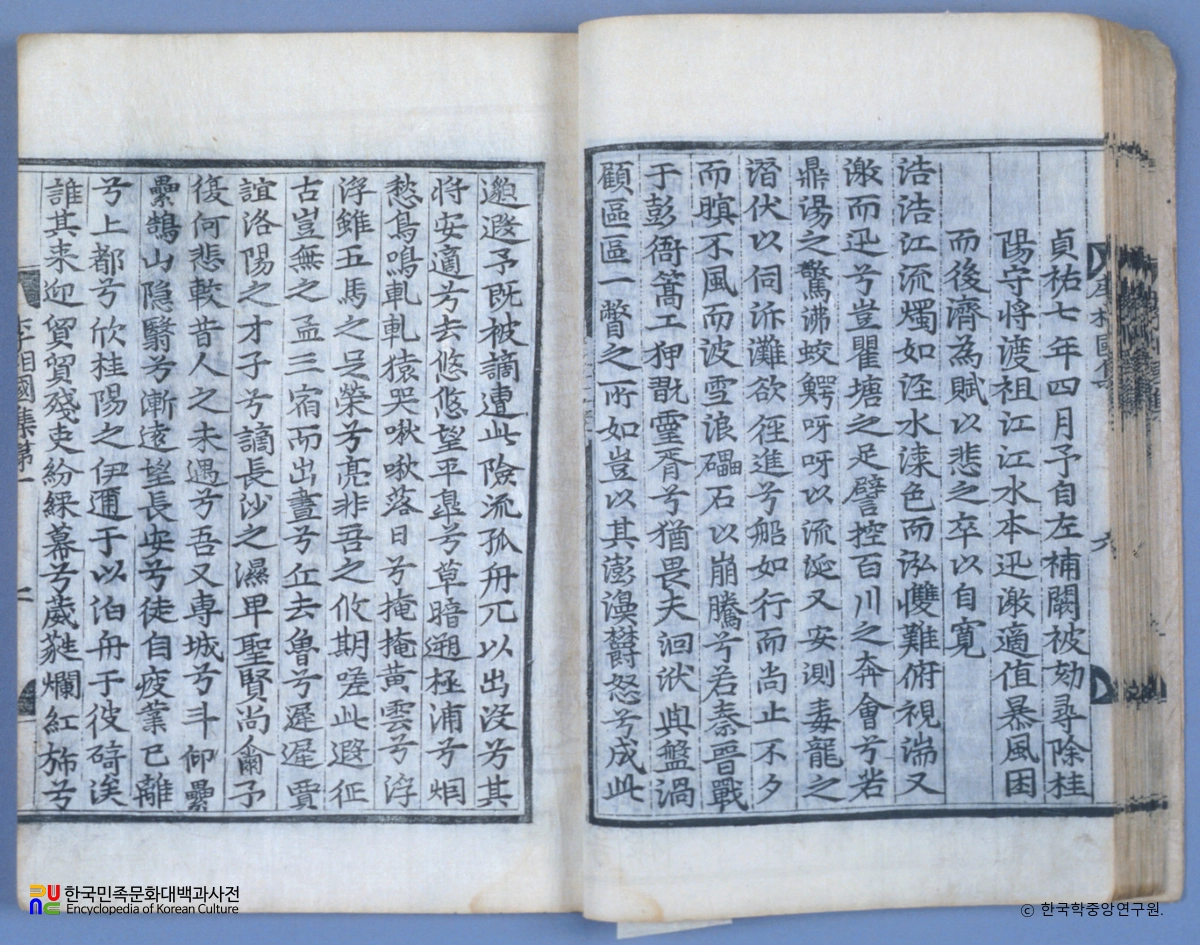 貞祐七年四月予自左補闕被劾尋除桂
陽守將渡祖江江水本迅激適值暴風困
而後濟為賦以悲之卒以自寬
浩浩江流濁如涇水淶色而泓㦼難俯視湍又
激而迅兮豈瞿塘之足譬控百川之奔會兮若
鼎湯之驚沸蛟鰐呀呀以流涎又安測毒龍之
潛伏以伺泝灘欲徑進兮船如行而尚止不夕
而暝不風而波雪浪礧石以崩騰兮若秦晉戰
于彭衙篙工狎翫靈胥兮猶畏夫洄洑與盤渦
顧區區一瞥之所如豈以其澎濞欝怒兮成此
邀遐予既被謫遭此險流孤舟兀以出沒兮其
將安適兮去悠悠望平皐兮草暗遡極浦兮烟
愁鳥鳴軋軋猿哭啾啾落日兮掩掩黃雲兮浮
浮雖五馬之足榮兮亮非吾之攸期嗟此遐征
古豈無之孟三宿而出晝兮丘去魯兮遲遲賈
誼洛陽之才子兮謫長沙之濕卑聖賢尚爾予
復何悲較昔人之未遇兮吾又専城兮斗仰纍
纍鵠山隐翳兮漸遠望長安兮徒自疲業已離
兮上都兮欣桂陽之伊邇于以泊舟于彼碕涘
誰其来迎貿貿殘吏紛綵幕兮葳蕤爛紅斾兮
李相國集第一
한국민족문화대백과사전
Encyclopedia of Korean Culture
© 한국학중앙연구원.